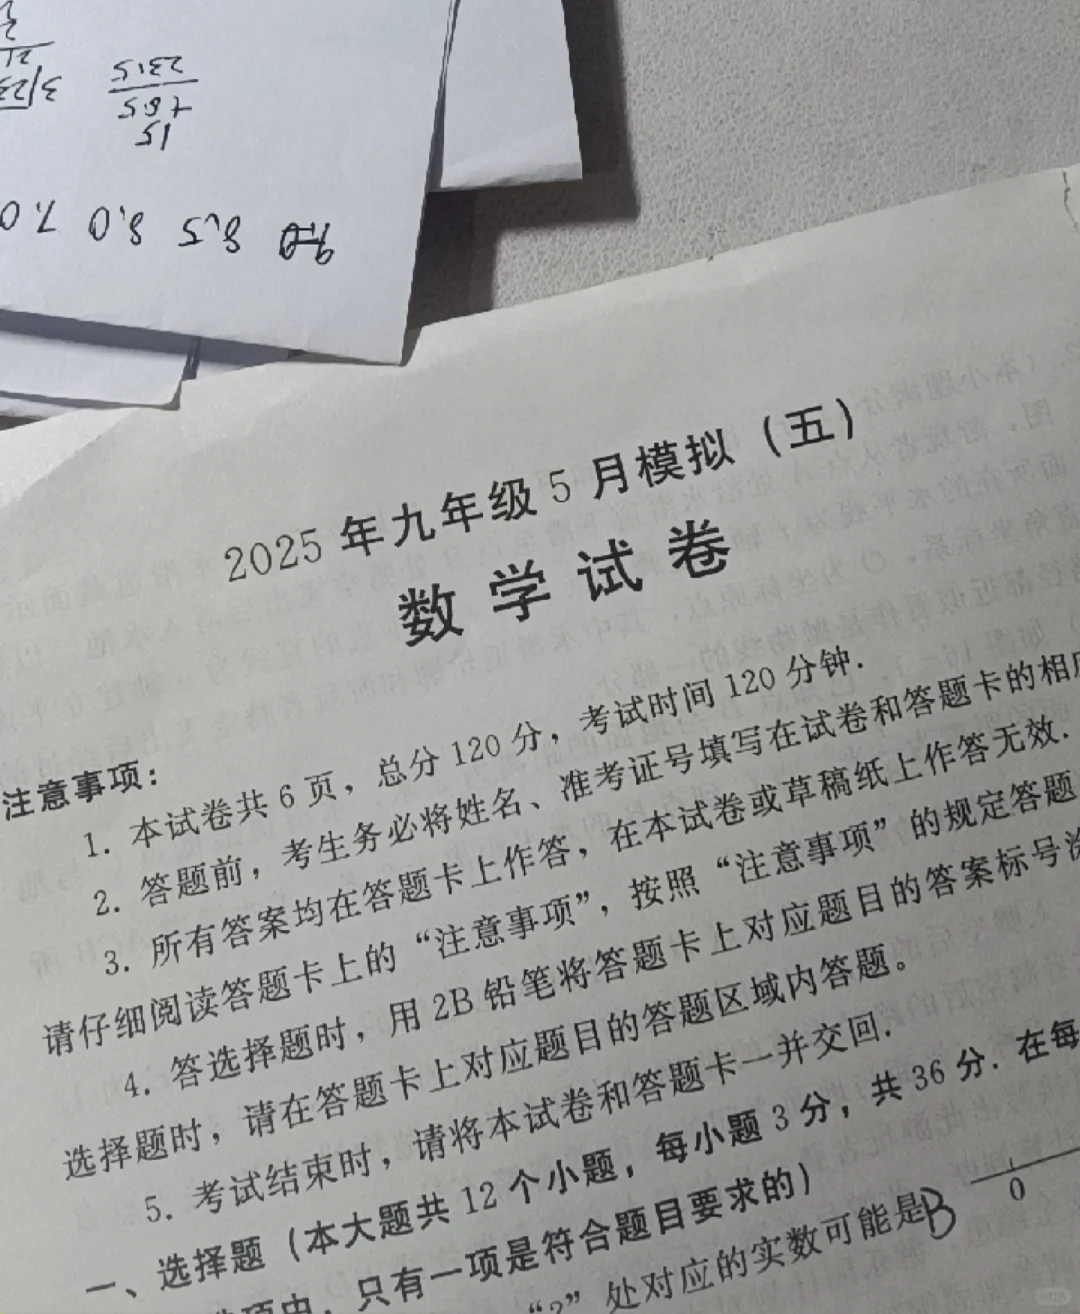 15
+8.5
23.5
9.0 8.5 8.0 7.0
2025年九年级5月模拟（五）
数学试卷
注意事项：
1. 本试卷共6页，总分120分，考试时间120分钟.
2. 答题前，考生务必将姓名、准考证号填写在试卷和答题卡的相
3. 所有答案均在答题卡上作答，在本试卷或草稿纸上作答无效.
请仔细阅读答题卡上的“注意事项”，按照“注意事项”的规定答题
4. 答选择题时，用2B铅笔将答题卡上对应题目的答案标号
选择题时，请在答题卡上对应题目的答题区域内答题。
5. 考试结束时，请将本试卷和答题卡一并交回.
一、选择题（本大题共12个小题，每小题3分，共36分. 在每
项中，只有一项是符合题目要求的）
“?”处对应的实数可能是B
0